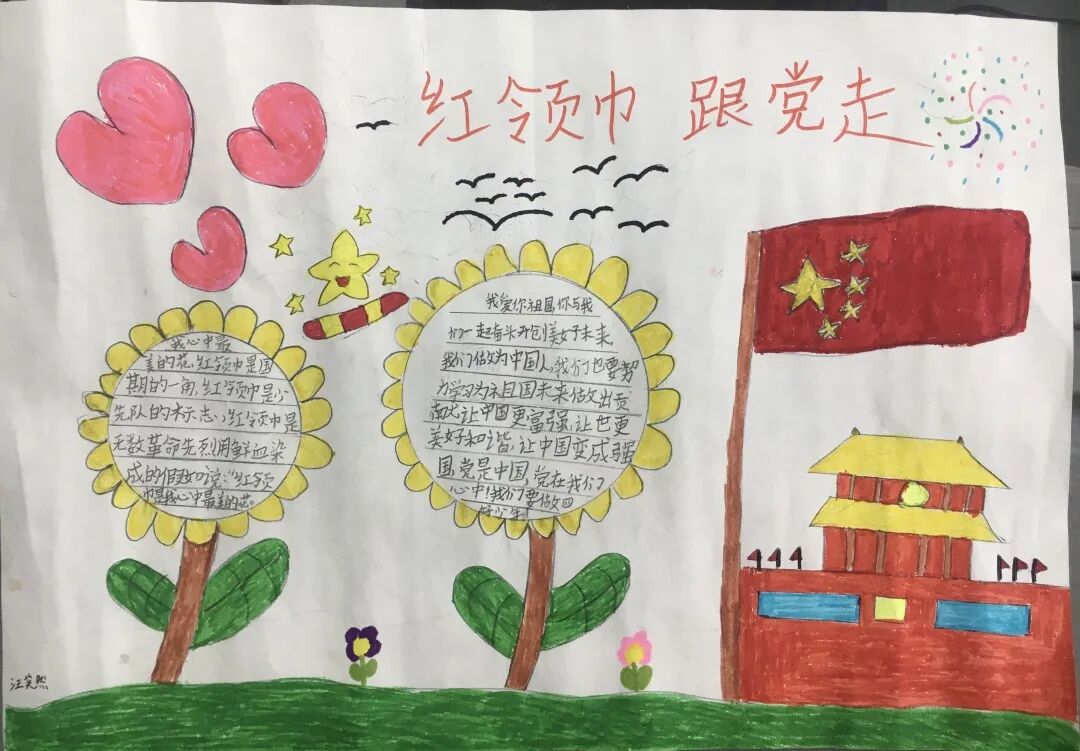 红领巾 跟党走
我心中最
美的花,红领巾是国
期的一角,红领巾是少
先队的标志,红领巾是
无数革命先烈用鲜血染
成的假如说:“红领
巾是我心中最美的花。
我爱你祖国,你与我
们一起奋斗开创美好未来,
我们做为中国人,我们也要努
力学习为祖国未来做出贡
献让中国更富强,让世更
美好和谐,让中国变成强
国,党是中国,党在我们
心中!我们要做四
好少年!
汪笑然